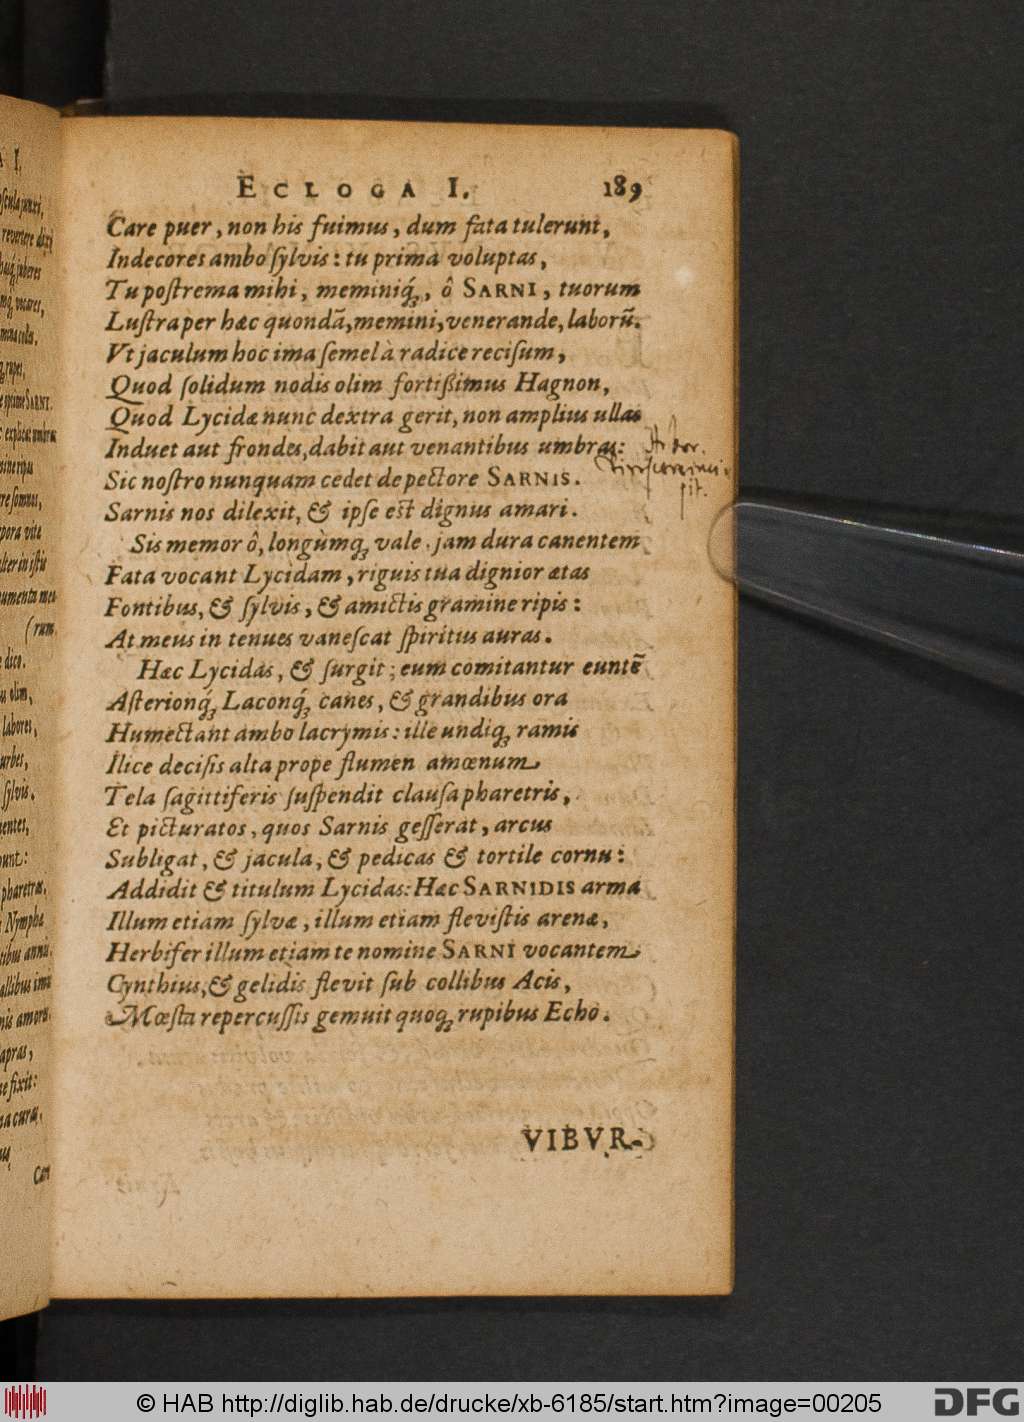 ECLOGA I. 189
Care puer, non his fuimus, dum fata tulerunt,
Indecores ambo ſylvis: tu prima voluptas,
Tu poſtrema mihi, meminiq́ꝫ, ô SARNI, tuorum
Luſtra per hæc quondã, memini, venerande, laborũ.
Vt jaculum hoc ima ſemel à radice reciſum,
Quod ſolidum nodis olim fortißimus Hagnon,
Quod Lycidæ nunc dextra gerit, non amplius ullas
Induet aut frondes, dabit aut venantibus umbras:
Sic noſtro nunquam cedet de pectore SARNIS.
Sarnis nos dilexit, & ipſe eſt dignus amari.
Sis memor ô, longùmqꝫ vale. jam dura canentem
Fata vocant Lycidam, riguis tua dignior ætas
Fontibus, & ſylvis, & amictis gramine ripis:
At meus in tenues vaneſcat ſpiritus auras.
Hæc Lycidas, & ſurgit; eum comitantur euntẽ
Aſterionq́ꝫ Laconq́ꝫ canes, & grandibus ora
Humectant ambo lacrymis: ille undiqꝫ ramis
Ilice deciſis alta prope flumen amœnum
Tela ſagittiferis ſuſpendit clauſa pharetris,
Et picturatos, quos Sarnis geſſerat, arcus
Subligat, & jacula, & pedicas & tortile cornu:
Addidit & titulum Lycidas: Hæc SARNIDIS arma
Illum etiam ſylvæ, illum etiam fleviſtis arenæ,
Herbifer illum etiam te nomine SARNI vocantem
Cynthius, & gelidis flevit ſub collibus Acis,
Mœſta repercuſſis gemuit quoqꝫ rupibus Echo.
VIBVR-
© HAB http://diglib.hab.de/drucke/xb-6185/start.htm?image=00205
DFG